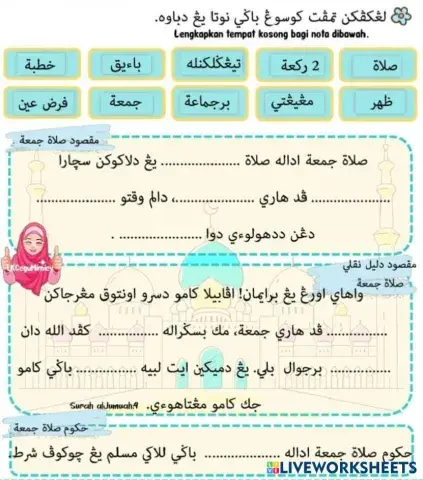 لڠکڤکن تمڤت کوسوڠ باݢي نوتا يڠ دباوه.
Lengkapkan tempat kosong bagi nota dibawah.
صلاة 2 رکعة تيڠݢلکنله باءيق خطبة
ظهر مڠيڠتي برجماعة جمعة فرض عين
مقصود صلاة جمعة
صلاة جمعة اداله صلاة .................... يڠ دلاکوکن سچارا
.................... ڤد هاري ....................، دالم وقتو ....................
دڠن ددهولوءي دوا .................... .
KCeguMimicy
مقصود دليل نقلي
صلاة جمعة
واهاي اورڠ يڠ برايمان! اڤابيلا کامو دسرو اونتوق مڠرجاکن
............... ڤد هاري جمعة، مك بسݢراله ............... کڤد الله دان
............... برجوال بلي. يڠ دميکين ايت لبيه ............... باݢي کامو
جك کامو مڠتاهوءي. Surah alJumuah:9
حکوم صلاة جمعة
حکوم صلاة جمعة اداله .................... باݢي للاکي مسلم يڠ چوکوڤ شرط.
LIVEWORKSHEETS